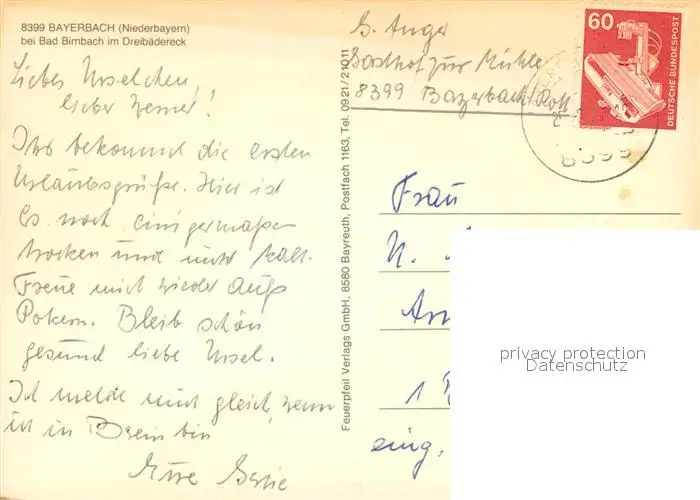 8399 BAYERBACH (Niederbayern)
bei Bad Birnbach im Dreibädereck
Liebes Urselchen,
lieber Werner!
Ihr bekommt die ersten
Urlaubsgrüße. Hier ist
es noch einigermaßen
trocken und nicht kalt.
Freue mich wieder aufs
Pokern. Bleib schön
gesund liebe Ursel.
Ich melde mich gleich, wenn
ich in bin
Eure
Feuerpfeil Verlags GmbH, 8580 Bayreuth, Postfach 1163, Tel. 0921/21011
G. Anger
Gasthof zur Mühle
8399 Bayerbach/Rott
60
DEUTSCHE BUNDESPOST
8399
Frau
U.
1
eing.
privacy protection
Datenschutz